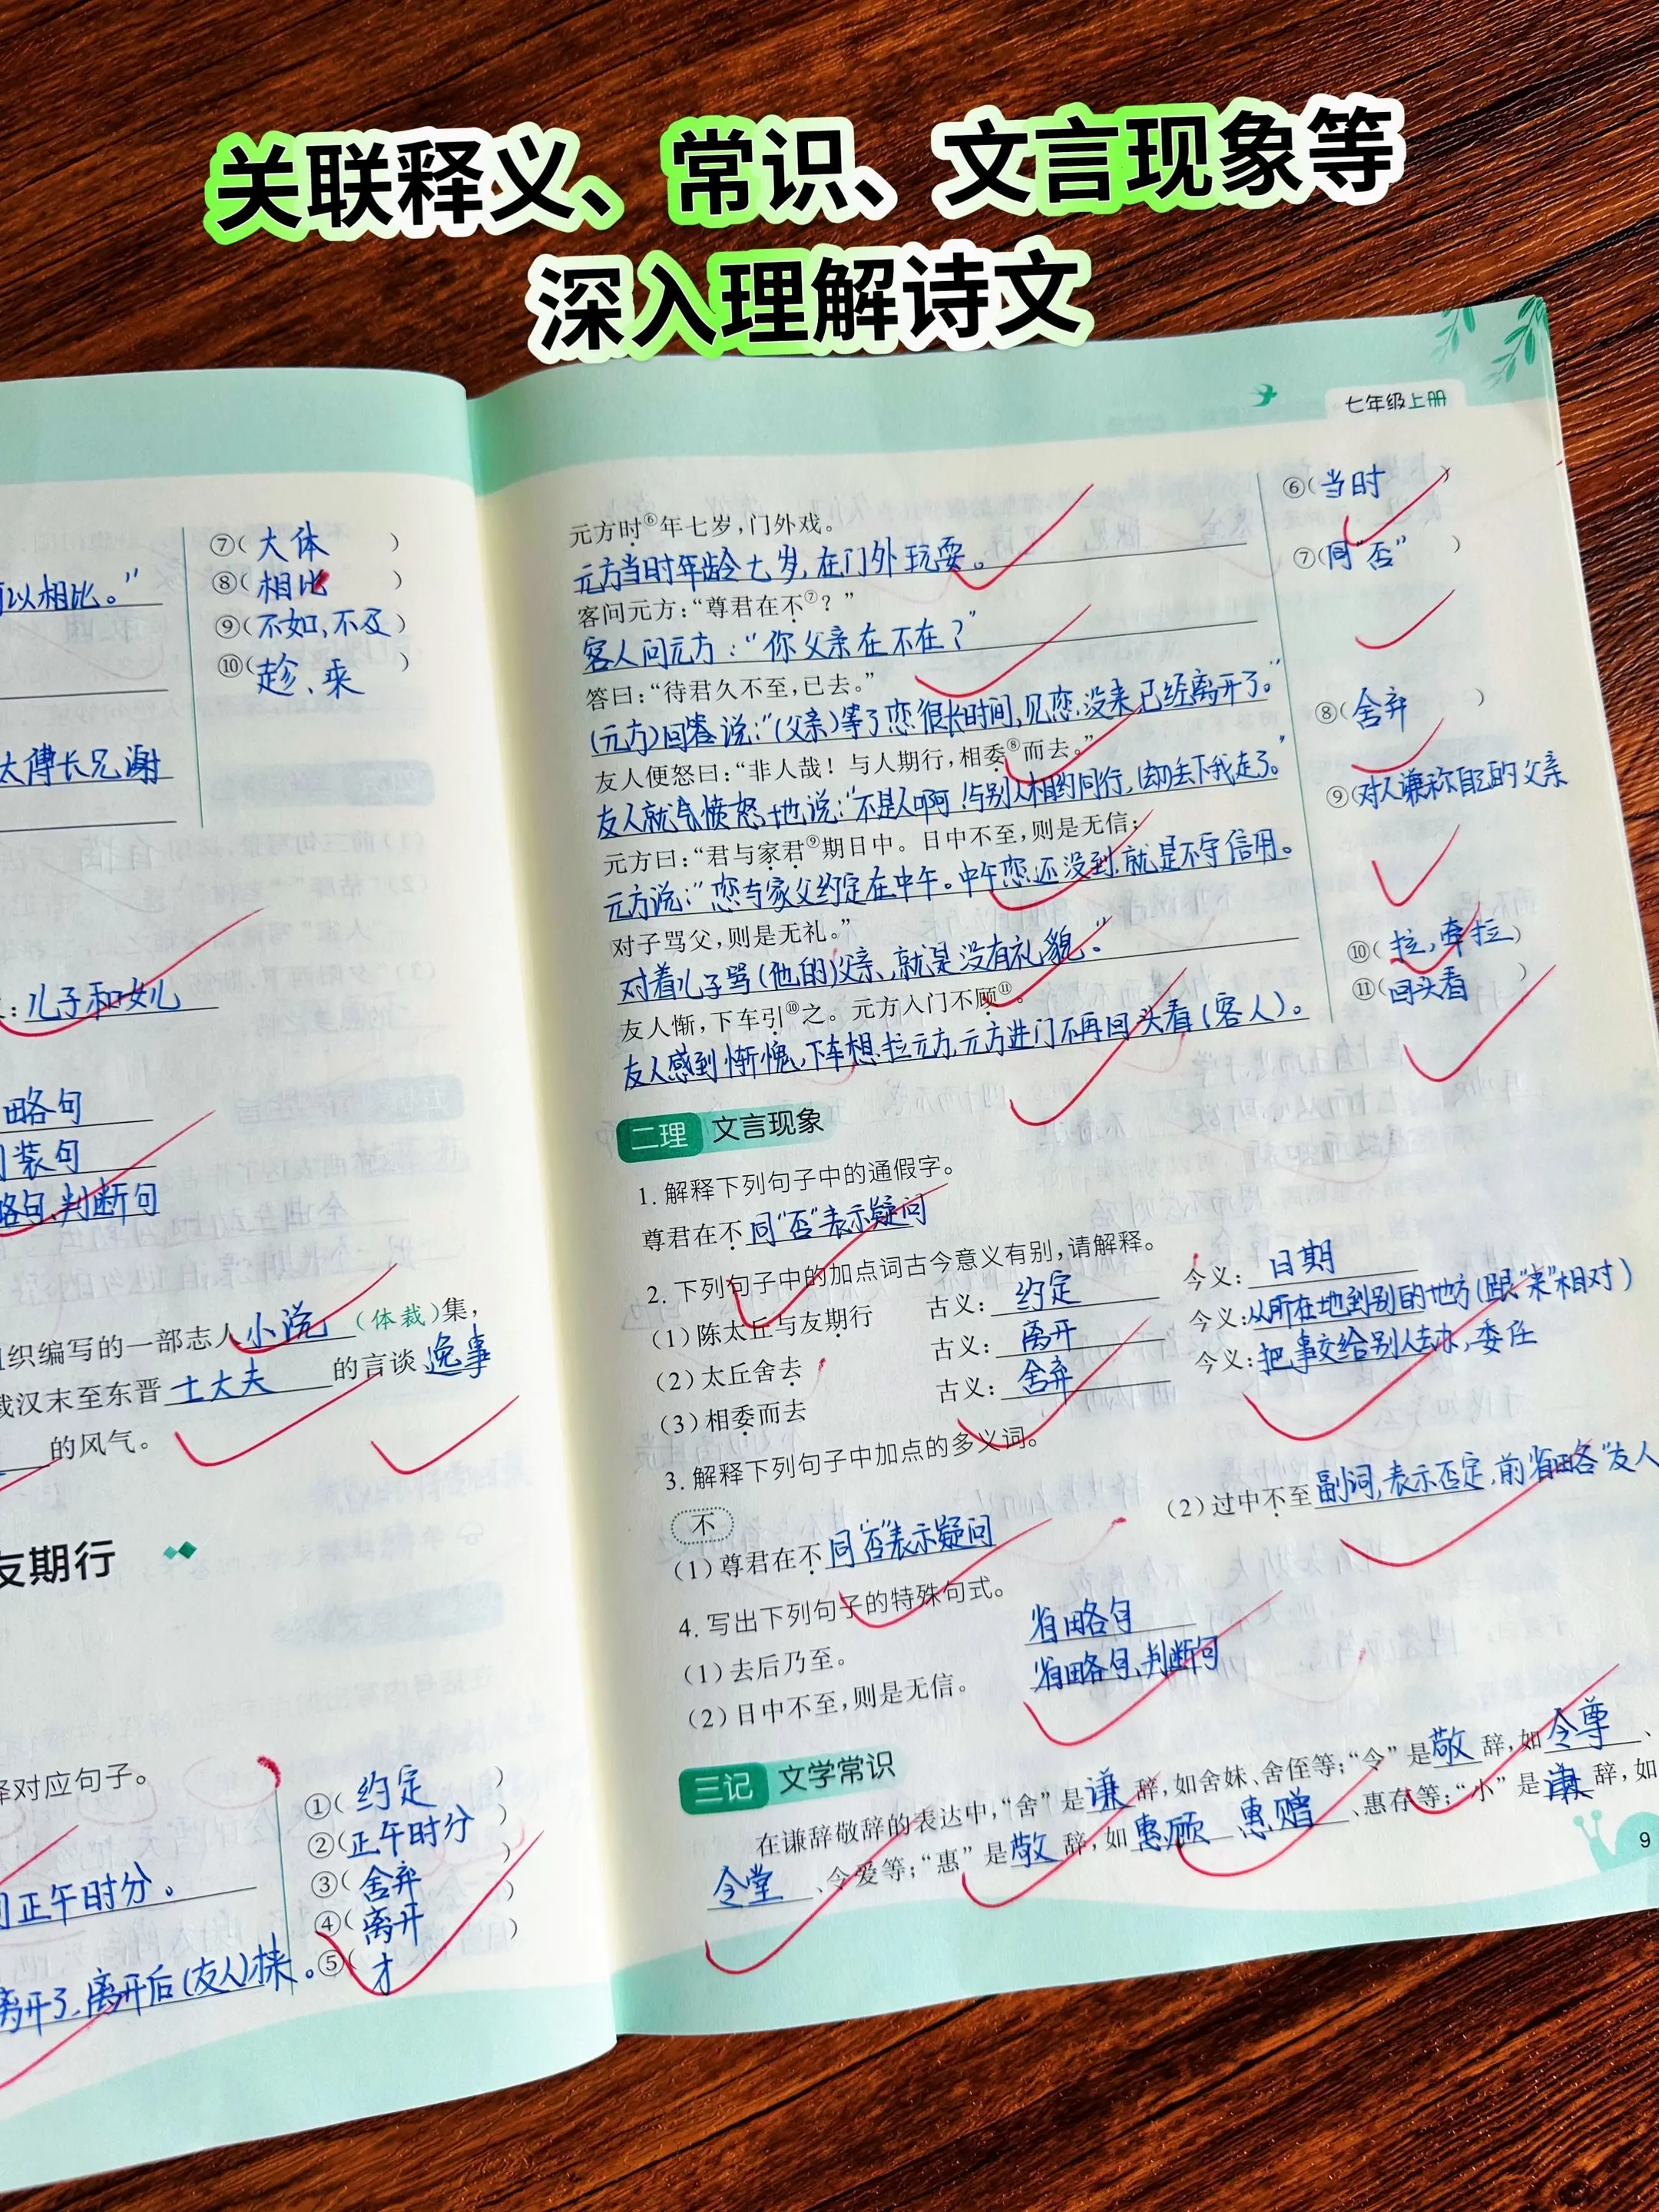 关联释义、常识、文言现象等
深入理解诗文
可以相比。”
太傅长兄谢
⑦(大体)
⑧(相比)
⑨(不如,不及)
⑩(趁、乘)
:儿子和女儿
略句
装句
略句,判断句
织编写的一部志人小说(体裁)集,
载汉末至东晋士大夫的言谈逸事
的风气。
友期行
择对应句子。
正午时分。
离开了,离开后(友人)才来。
①(约定)
②(正午时分)
③(舍弃)
④(离开)
⑤(才
七年级上册
元方时⑥年七岁,门外戏。
元方当时年龄七岁,在门外玩耍。
客问元方:“尊君在不⑦?”
客人问元方:“你父亲在不在?”
答曰:“待君久不至,已去。”
(元方)回答说:“(父亲)等了您很长时间,见您没来已经离开了。”
友人便怒曰:“非人哉!与人期行,相委⑧而去。”
友人就气愤怒地说:“不是人啊!与别人相约同行,却丢下我走了。”
元方曰:“君与家君⑨期日中。日中不至,则是无信;
元方说:“您与家父约定在中午。中午您还没到,就是不守信用。
对子骂父,则是无礼。”
对着儿子骂(他的)父亲,就是没有礼貌。”
友人惭,下车引⑩之。元方入门不顾⑪。
友人感到惭愧,下车想拉元方,元方进门不再回头看(客人)。
⑥(当时)
⑦(同“否”)
⑧(舍弃)
⑨(对人谦称自己的父亲
⑩(拉,牵拉)
⑪(回头看)
二理 文言现象
1. 解释下列句子中的通假字。
尊君在不 同“否”表示疑问
2. 下列句子中的加点词古今意义有别,请解释。
(1)陈太丘与友期行 古义:约定 今义:日期
(2)太丘舍去 古义:离开 今义:从所在地到别的地方(跟“来”相对)
(3)相委而去 古义:舍弃 今义:把事交给别人去办,委任
3. 解释下列句子中加点的多义词。
不
(1)尊君在不 同“否”表示疑问 (2)过中不至 副词,表示否定,前省略“友人
4. 写出下列句子的特殊句式。
(1)去后乃至。 省略句
(2)日中不至,则是无信。 省略句,判断句
三记 文学常识
在谦辞敬辞的表达中,“舍”是谦辞,如舍妹、舍侄等;“令”是敬辞,如令尊、
令堂、令爱等;“惠”是敬辞,如惠顾 惠赠、惠存等;“小”是谦辞,如
9